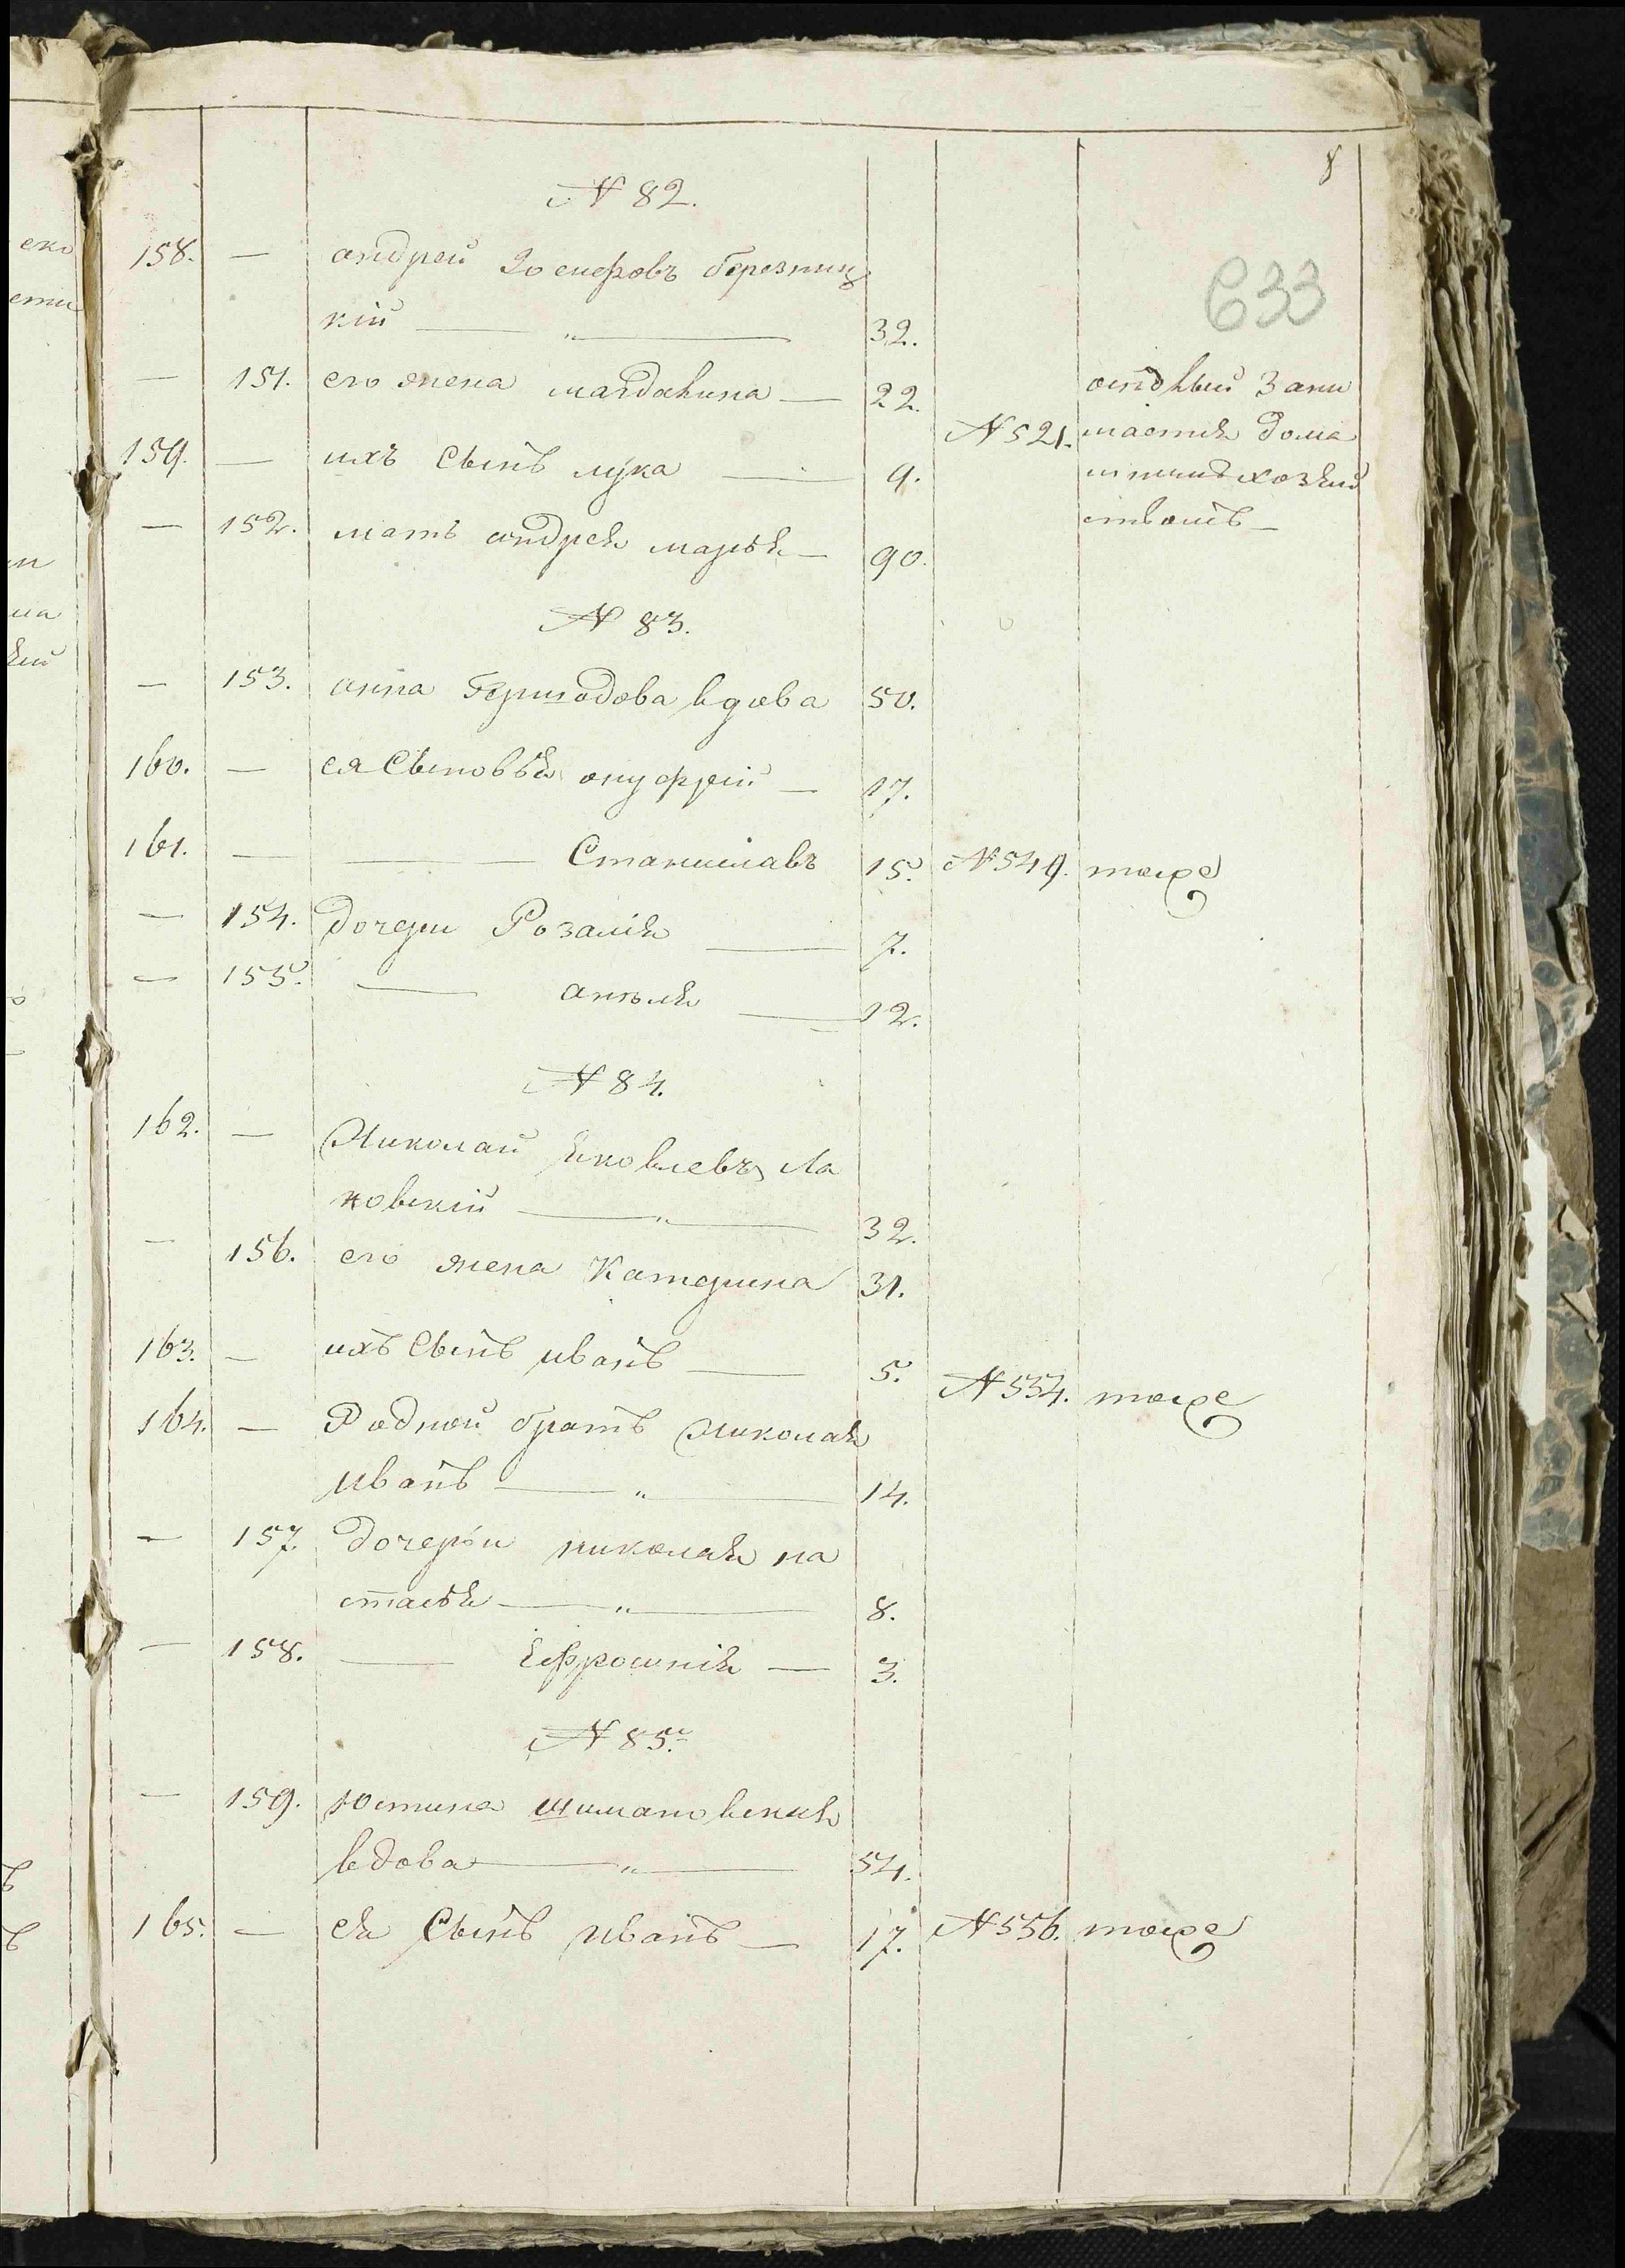 8
633
N 82.
158. — андрей Іосифовъ березниц
кій — „ — 32.
— 151. его жена магдалина — 22.
159. — ихъ Сынъ лука — 9.
— 152. мать андрея марья — 90.
N 521.
отдѣльн Зани
мается дома
шнимъ хозяй
ствомъ —
N 83.
— 153. анна вдова 50.
160. — ея Сыновья онуфрій — 17.
161. — — Станиславъ 15. N 549. тоже
— 154. дочери Розалія — 7.
— 155. — анѣля — 12.
N 84.
162. — Николай Яковлевъ Ла
новскій — „ — 32.
— 156. его жена Катерина 31.
163. — ихъ Сынъ иванъ — 5. N 554. тоже
164. — Родной братъ Николая
Иванъ — „ — 14.
— 157. дочери николая на
стасья — „ — 8.
— 158. — Ефросинія — 3.
N 85.
— 159. Юстина шимановская
вдова — „ — 54.
165. — ея Сынъ Иванъ — 17. N 556. тоже
еко
ети
на